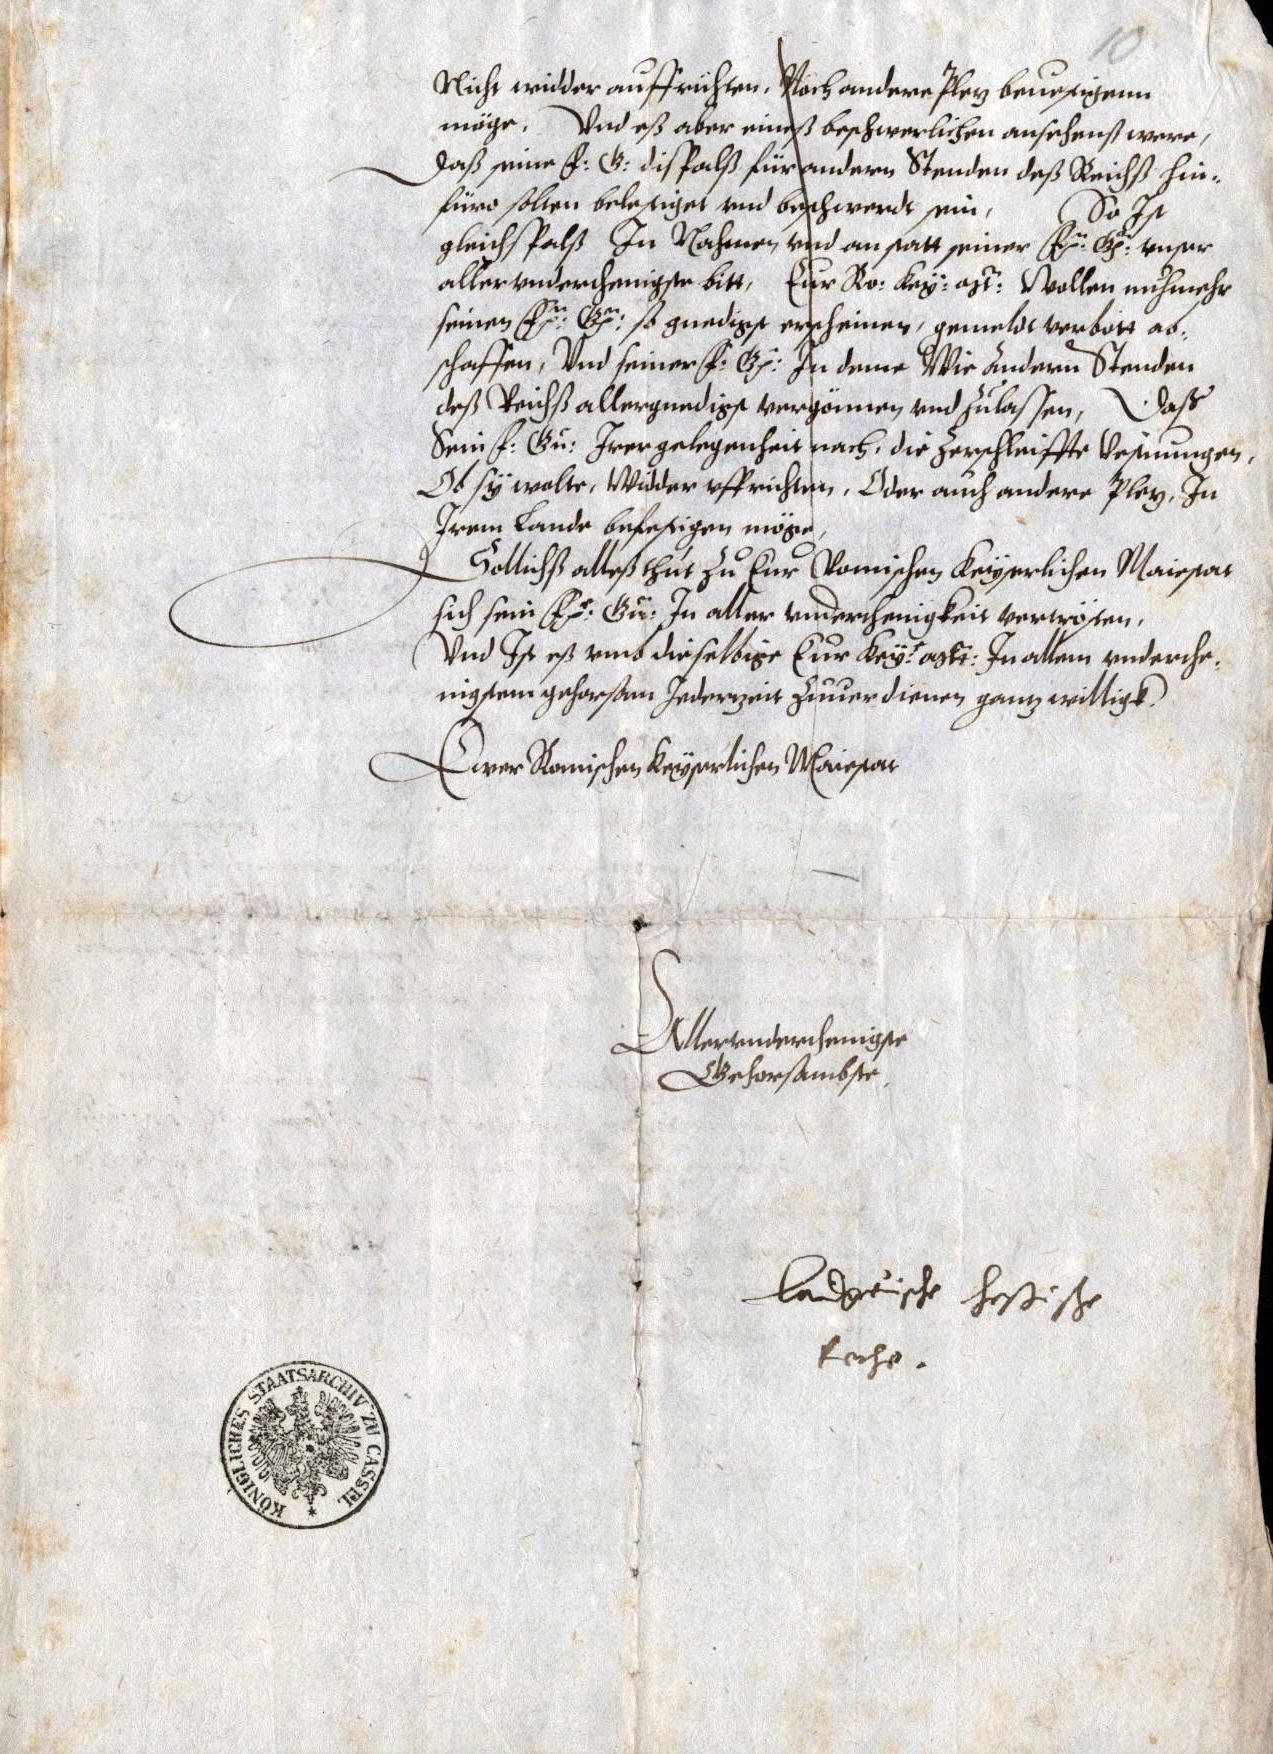 10
Nicht widder auffrichten, Noch andere Pletz beuestigenn
möge. Vnd eß aber eineß beschwerlichen ansehenß were,
daß seine f: G: dißfalß für andern Stenden deß Reichß hin-
füro solten belestiget vnd beschwerdt sein, So Ist
gleichsfalß In Nahmen vnd an statt seiner f: G: vnser
allervnderthenigste bitt, Eur Ro: Key: Mt: Wollen nuhmehr
seinen f: G: so gnedigst erscheinen, gemeldt verbott ab-
schaffen, Vnd seiner f: G: In deme Wie andern Stenden
deß Reichß allergnedigst vergönnen vnd Zulassen, Daß
Sein f: Gn: Irer gelegenheit nach, die Zerschleiffte Vestnungen,
Ob sy wolte, Widder vffrichten, Oder auch andere Pletz, In
Irem Lande befestigen möge,
Sollichß alleß thut Zu Eur Romischen Keyserlichen Maiestat
sich sein f: Gn: In aller vnderthenigkeit vertrösten,
Vnd Ist eß vmb dieselbige Eur Key: Mt: In allem vnderthe-
nigstem gehorsam Jederzeit Zuuerdienen gantz willigk.
Ewer Romischen Keyserlichen Maiestat
Allervnderthenigste
Gehorsambste,
Landgräische hessische
Rethe.
KÖNIGLICHES STAATSARCHIV ZU CASSEL